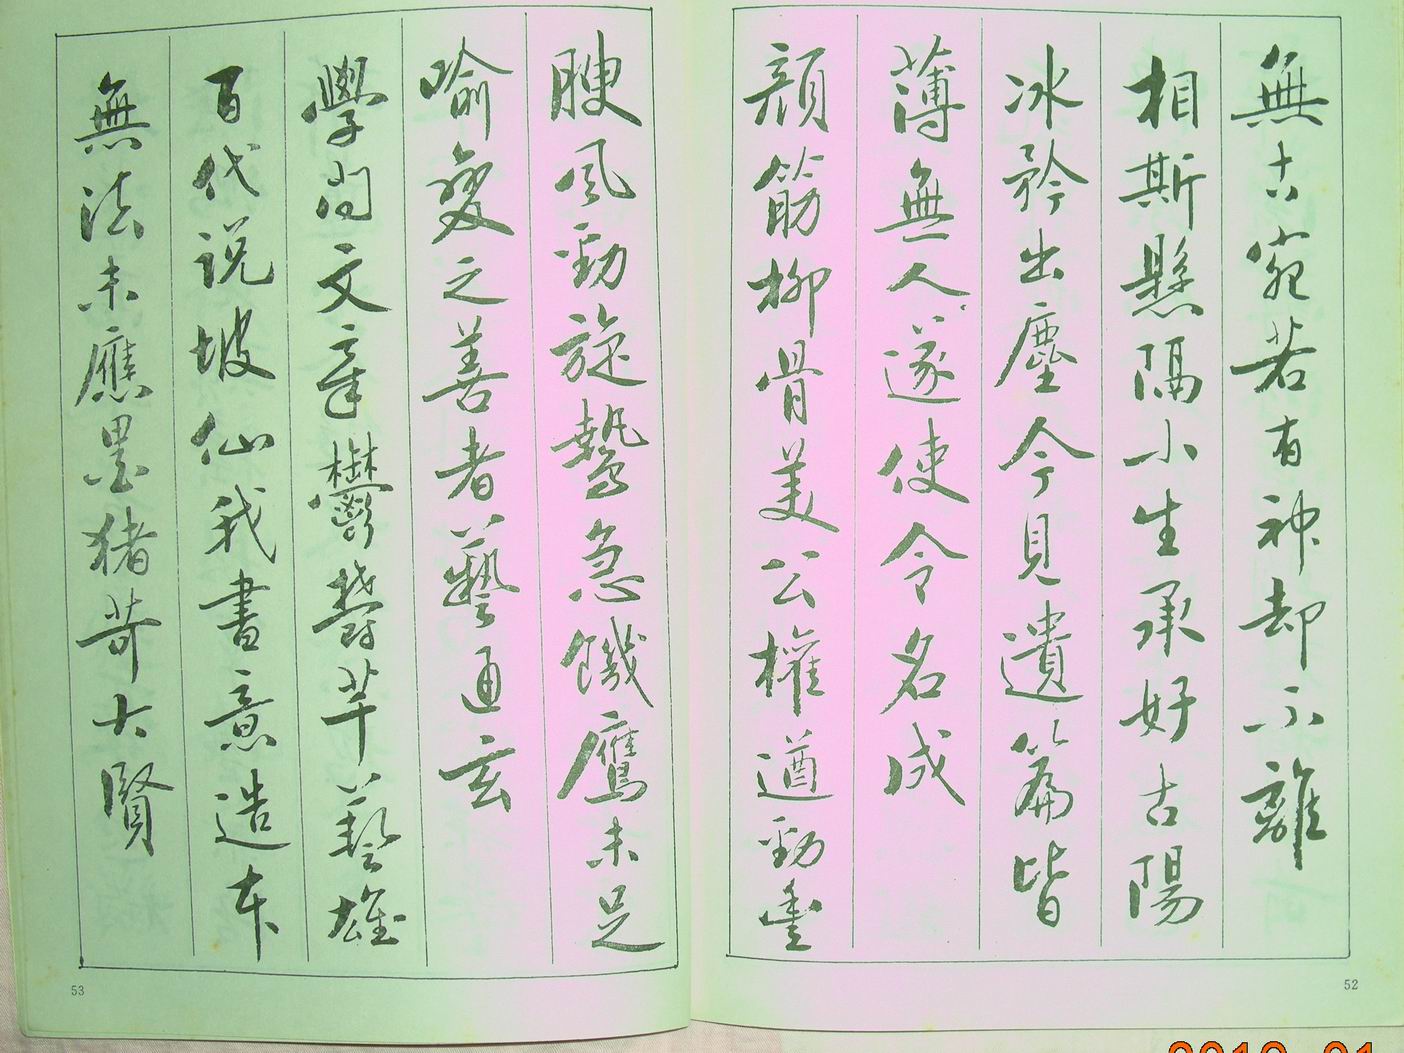 無古宛若有神却不離
相斯懸隔小生承好古陽
冰矜出塵今見遺篇皆
薄無人遂使令名成
顏筋柳骨美公權遒勁豊
腴風勁旋鷙急饑鷹未足
喻變之善者藝通玄
學問文章鬱勃芊藝雄
百代说坡仙我書意造本
無法未應墨猪苛大賢
52
53